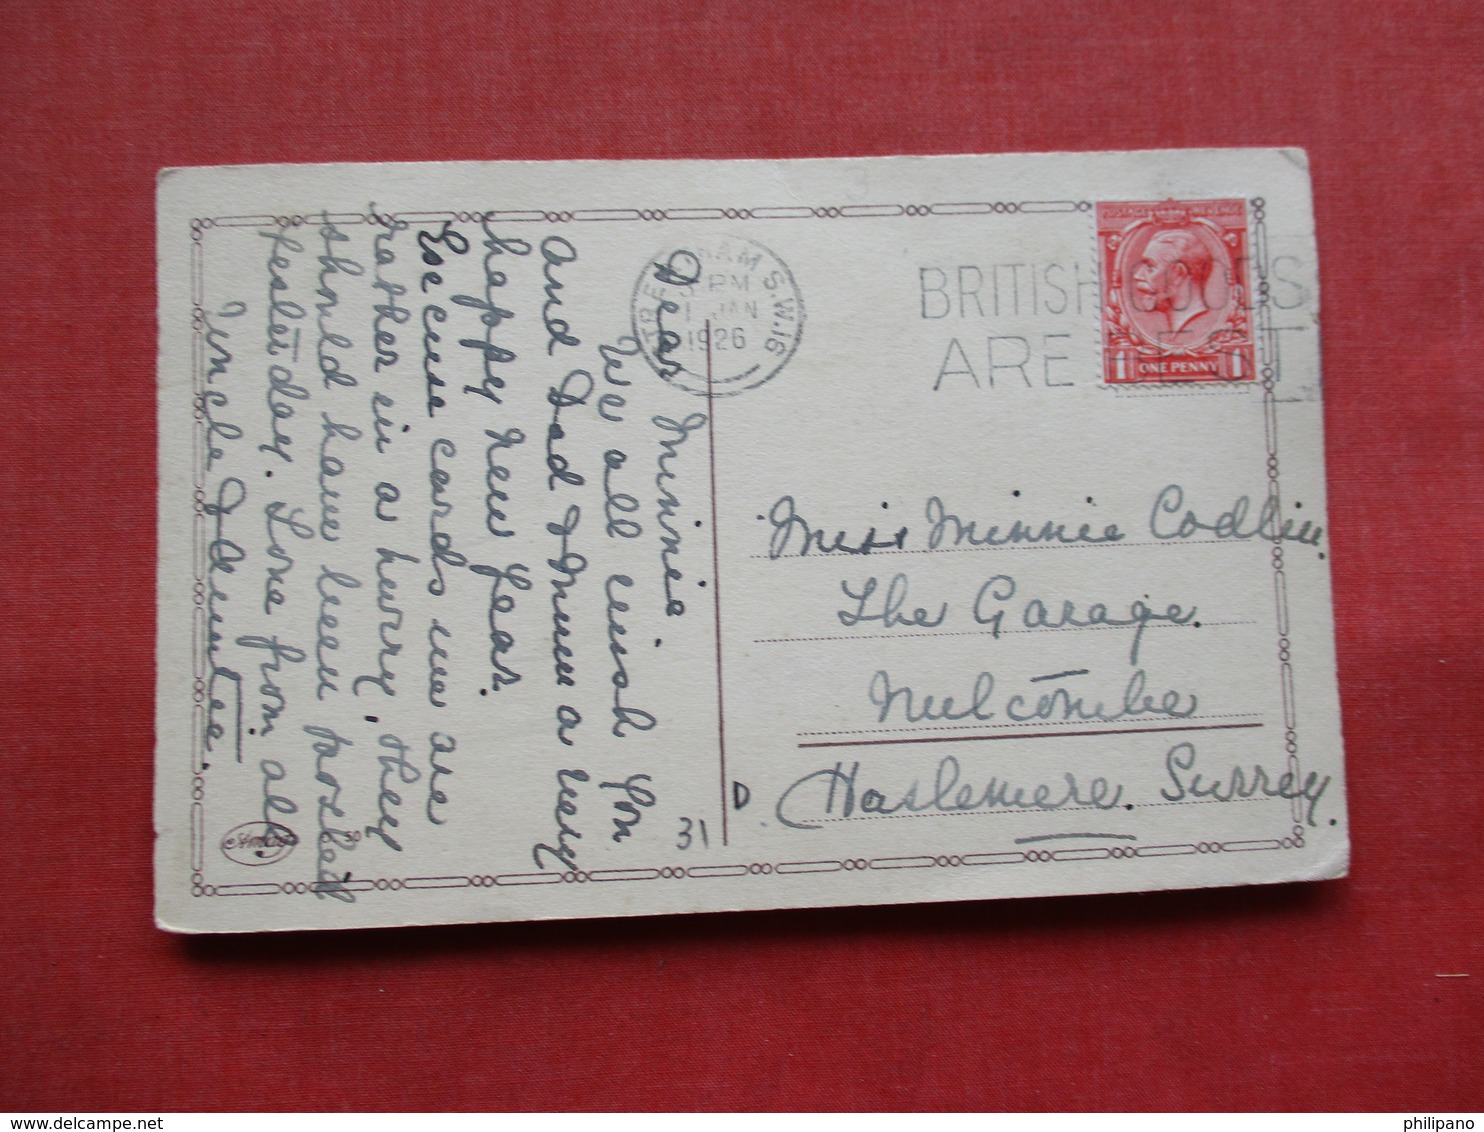 Dear Minnie
We all wish you
and Dad & Mum a very
happy New Year.
Excuse cards we are
rather in a hurry, they
should have been posted
yesterday. Love from all
Uncle & Auntie.
STREATHAM S.W.16
PM
1 JAN
1926
BRITISH GOODS
ARE BEST
1 ONE PENNY 1
Miss Minnie Codlin.
The Garage.
Haslemere. Surrey.
D
31
delcampe.net
philipano